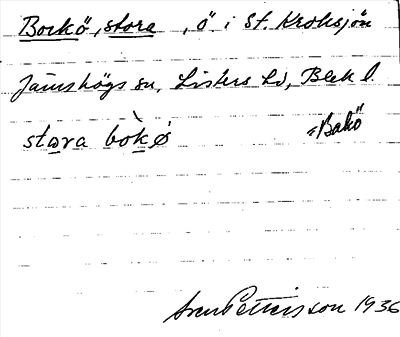 Bockö, stora , ö i St. Kroksjön
Jämshögs sn, Listers hd, Blek l.
stora bòkø =Bokö
Sven Pettersson 1936